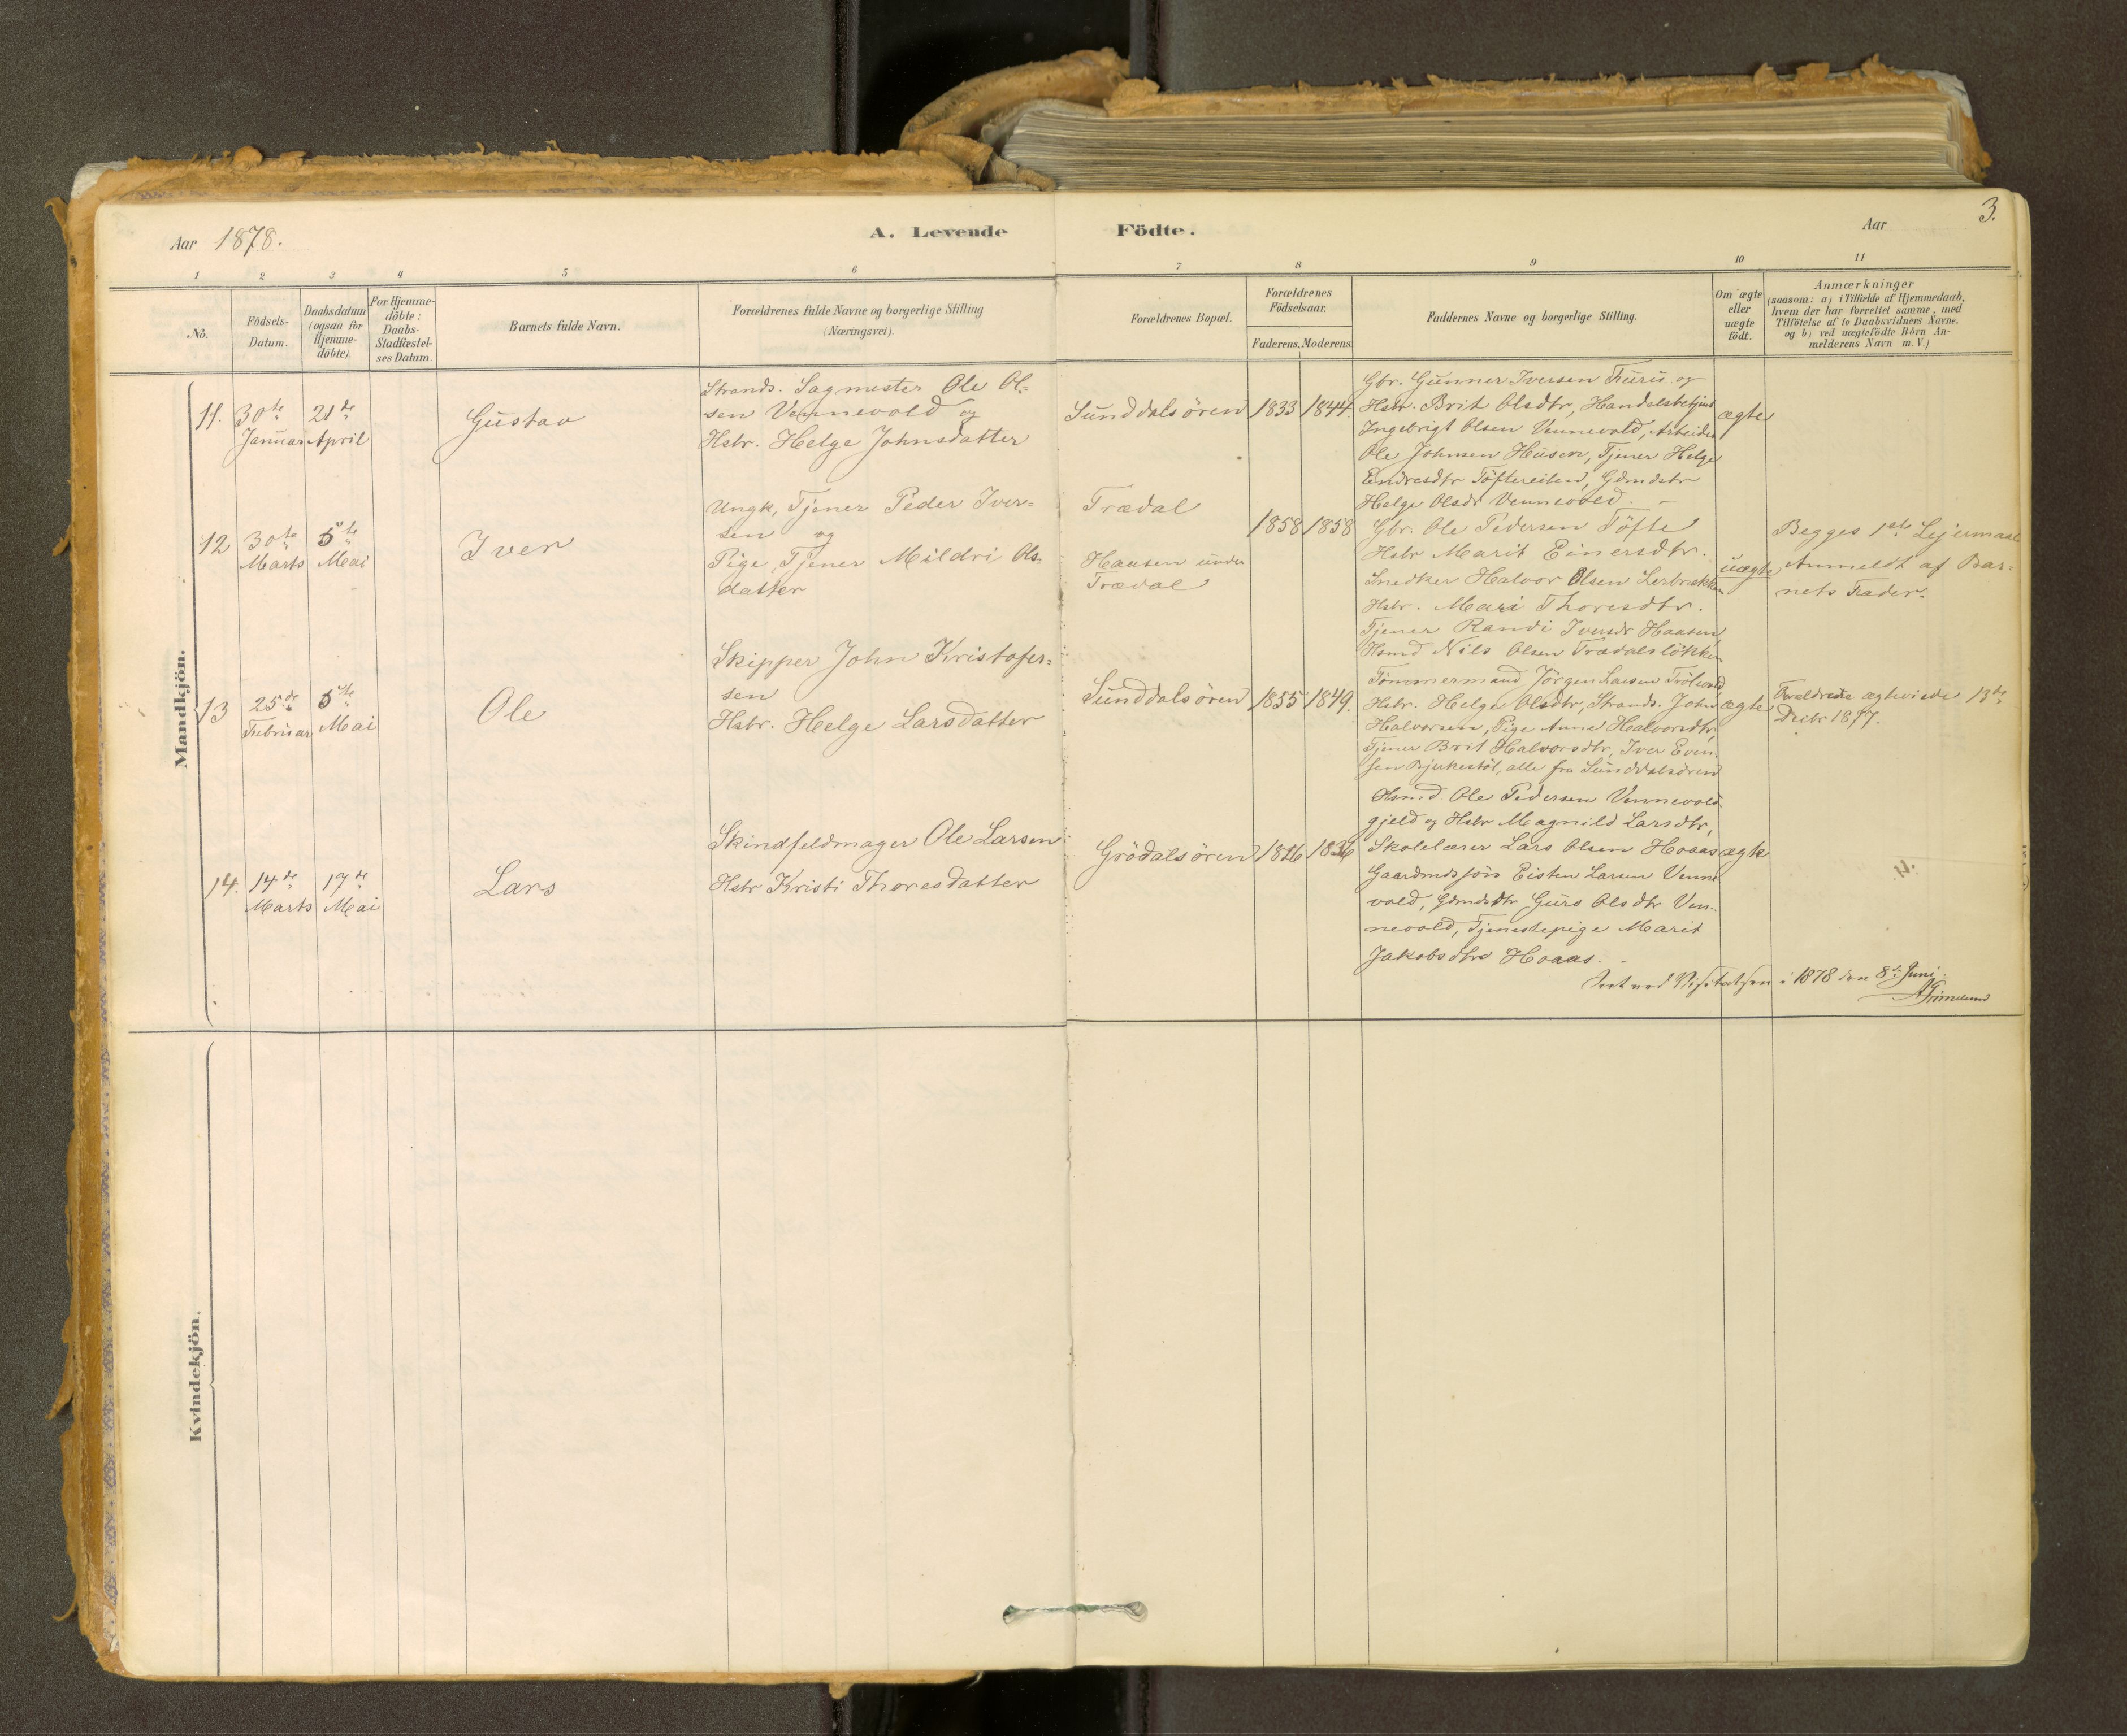 Aar 1878.
A. Levende
Födte.
Aar
3.
1 2 3 4 5 6 7 8 9 10 11
No.
Födsels-
Datum.
Daabsdatum
(ogsaa for
Hjemme-
döbte).
For Hjemme-
döbte:
Daabs-
Stadfæstel-
ses Datum.
Barnets fulde Navn.
Forældrenes fulde Navne og borgerlige Stilling
(Næringsvei).
Forældrenes Bopæl.
Forældrenes
Födselsaar.
Faderens. Moderens.
Faddernes Navne og borgerlige Stilling.
Om ægte
eller
uægte
födt.
Anmærkninger
(saasom: a) i Tilfælde af Hjemmedaab,
hvem der har forrettet samme, med
Tilföielse af to Daabsvidners Navne,
og b) ved uægtefödte Börn An-
melderens Navn m. V.)
Mandkjön.
11.
30te
Januar
21de
April
Gustav
Strands. Sagmester Ole Ol=
sen Vennevold og
Hstr. Helge Johnsdatter
Sunddalsören
1833
1844.
Gbr. Gunner Iversen Furu og
Hstr. Brit Olsdtr, Handelsbetjent
Ingebrigt Olsen Vennevold, Arbeider
Ole Johnsen Husem, Tjener Helge
Endresdtr Töftereiten, Gdmdstr
Helge Olsdr Vennevold. –
ægte
12
30te
Marts
5te
Mai
Iver
Ungk, Tjener Peder Iver=
sen og
Pige, Tjener Mildri Ols=
datter
Trædal
Haasen under
Trædal
1858
1858
Gbr. Ole Pedersen Töfte
Hstr Marit Einersdtr.
Snedker Halvor Olsen Lerbrække
Hstr. Mari Thoresdtr.
Tjener Randi Iversdr Haasen,
Hsmd Nils Olsen Trædalslökken
uægte
Begges 1ste Lejermaal
Anmeldt af Bar=
nets Fader.
13
25de
Februar
5te
Mai
Ole
Skipper John Kristofer=
sen
Hstr. Helge Larsdatter
Sunddalsören
1855
1849.
Tömmermand Jörgen Larsen
Hstr. Helge Olsdtr, Strands. John
Halvorsen, Pige Anne Halvorsdtr,
Tjener Brit Halvorsdtr, Iver Even=
sen Bjerkestöl, alle fra Sunddalsören
ægte
Forældrene ægteviede 13de
Decbr 1877.
14.
14de
Marts
17de
Mai
Lars
Skindfeldmager Ole Larsen
Hstr Kristi Thoresdatter
Grödalsören
1826
1836
Hsmd Ole Pedersen Vennevold
gjeld og Hstr Magnild Larsdtr,
Skolelærer Lars Olsen Hoaas
Gaardmdssön Eisten Larsen Venne
vold, Gdmdsdtr Guro Olsdtr Ven-
nevold, Tjenestepige Marit
Jakobsdtr Hoaas.
ægte
Seet ved Visitatsen i 1878 den 8de Juni
Grimelund
Kvindekjön.